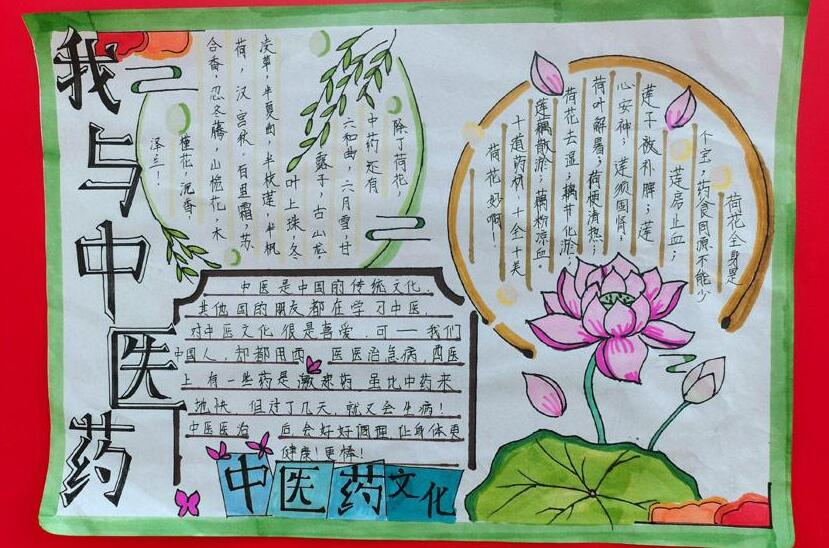 我与中医药
除了荷花，
中药还有
六和曲，六月雪，甘
露子，古山龙
叶上珠，冬
凌草，半夏曲，半枝莲，半帆
荷，汉宫秋，百里霜，苏
合香，忍冬藤，山桅花，木
槿花，沉香，
泽兰！
荷花全身是
个宝，药食同源不能少
莲房止血；
莲子敛补脾；莲
心安神；莲须固肾；
荷叶解暑；荷梗清热；
荷花去湿；藕节化淤；
莲藕散淤；藕粉凉血。
十道药材，十全十美
荷花妙啊！
中医是中国的传统文化，
其他国的朋友都在学习中医，
对中医文化很是喜爱，可——我们
中国人，却都用西 医医治急病，西医
上有一些药是激素药 虽比中药来
地快 但过了几天，就又会生病！
中医医治 后会好好调理 让身体更
健康！更棒！
中医药文化